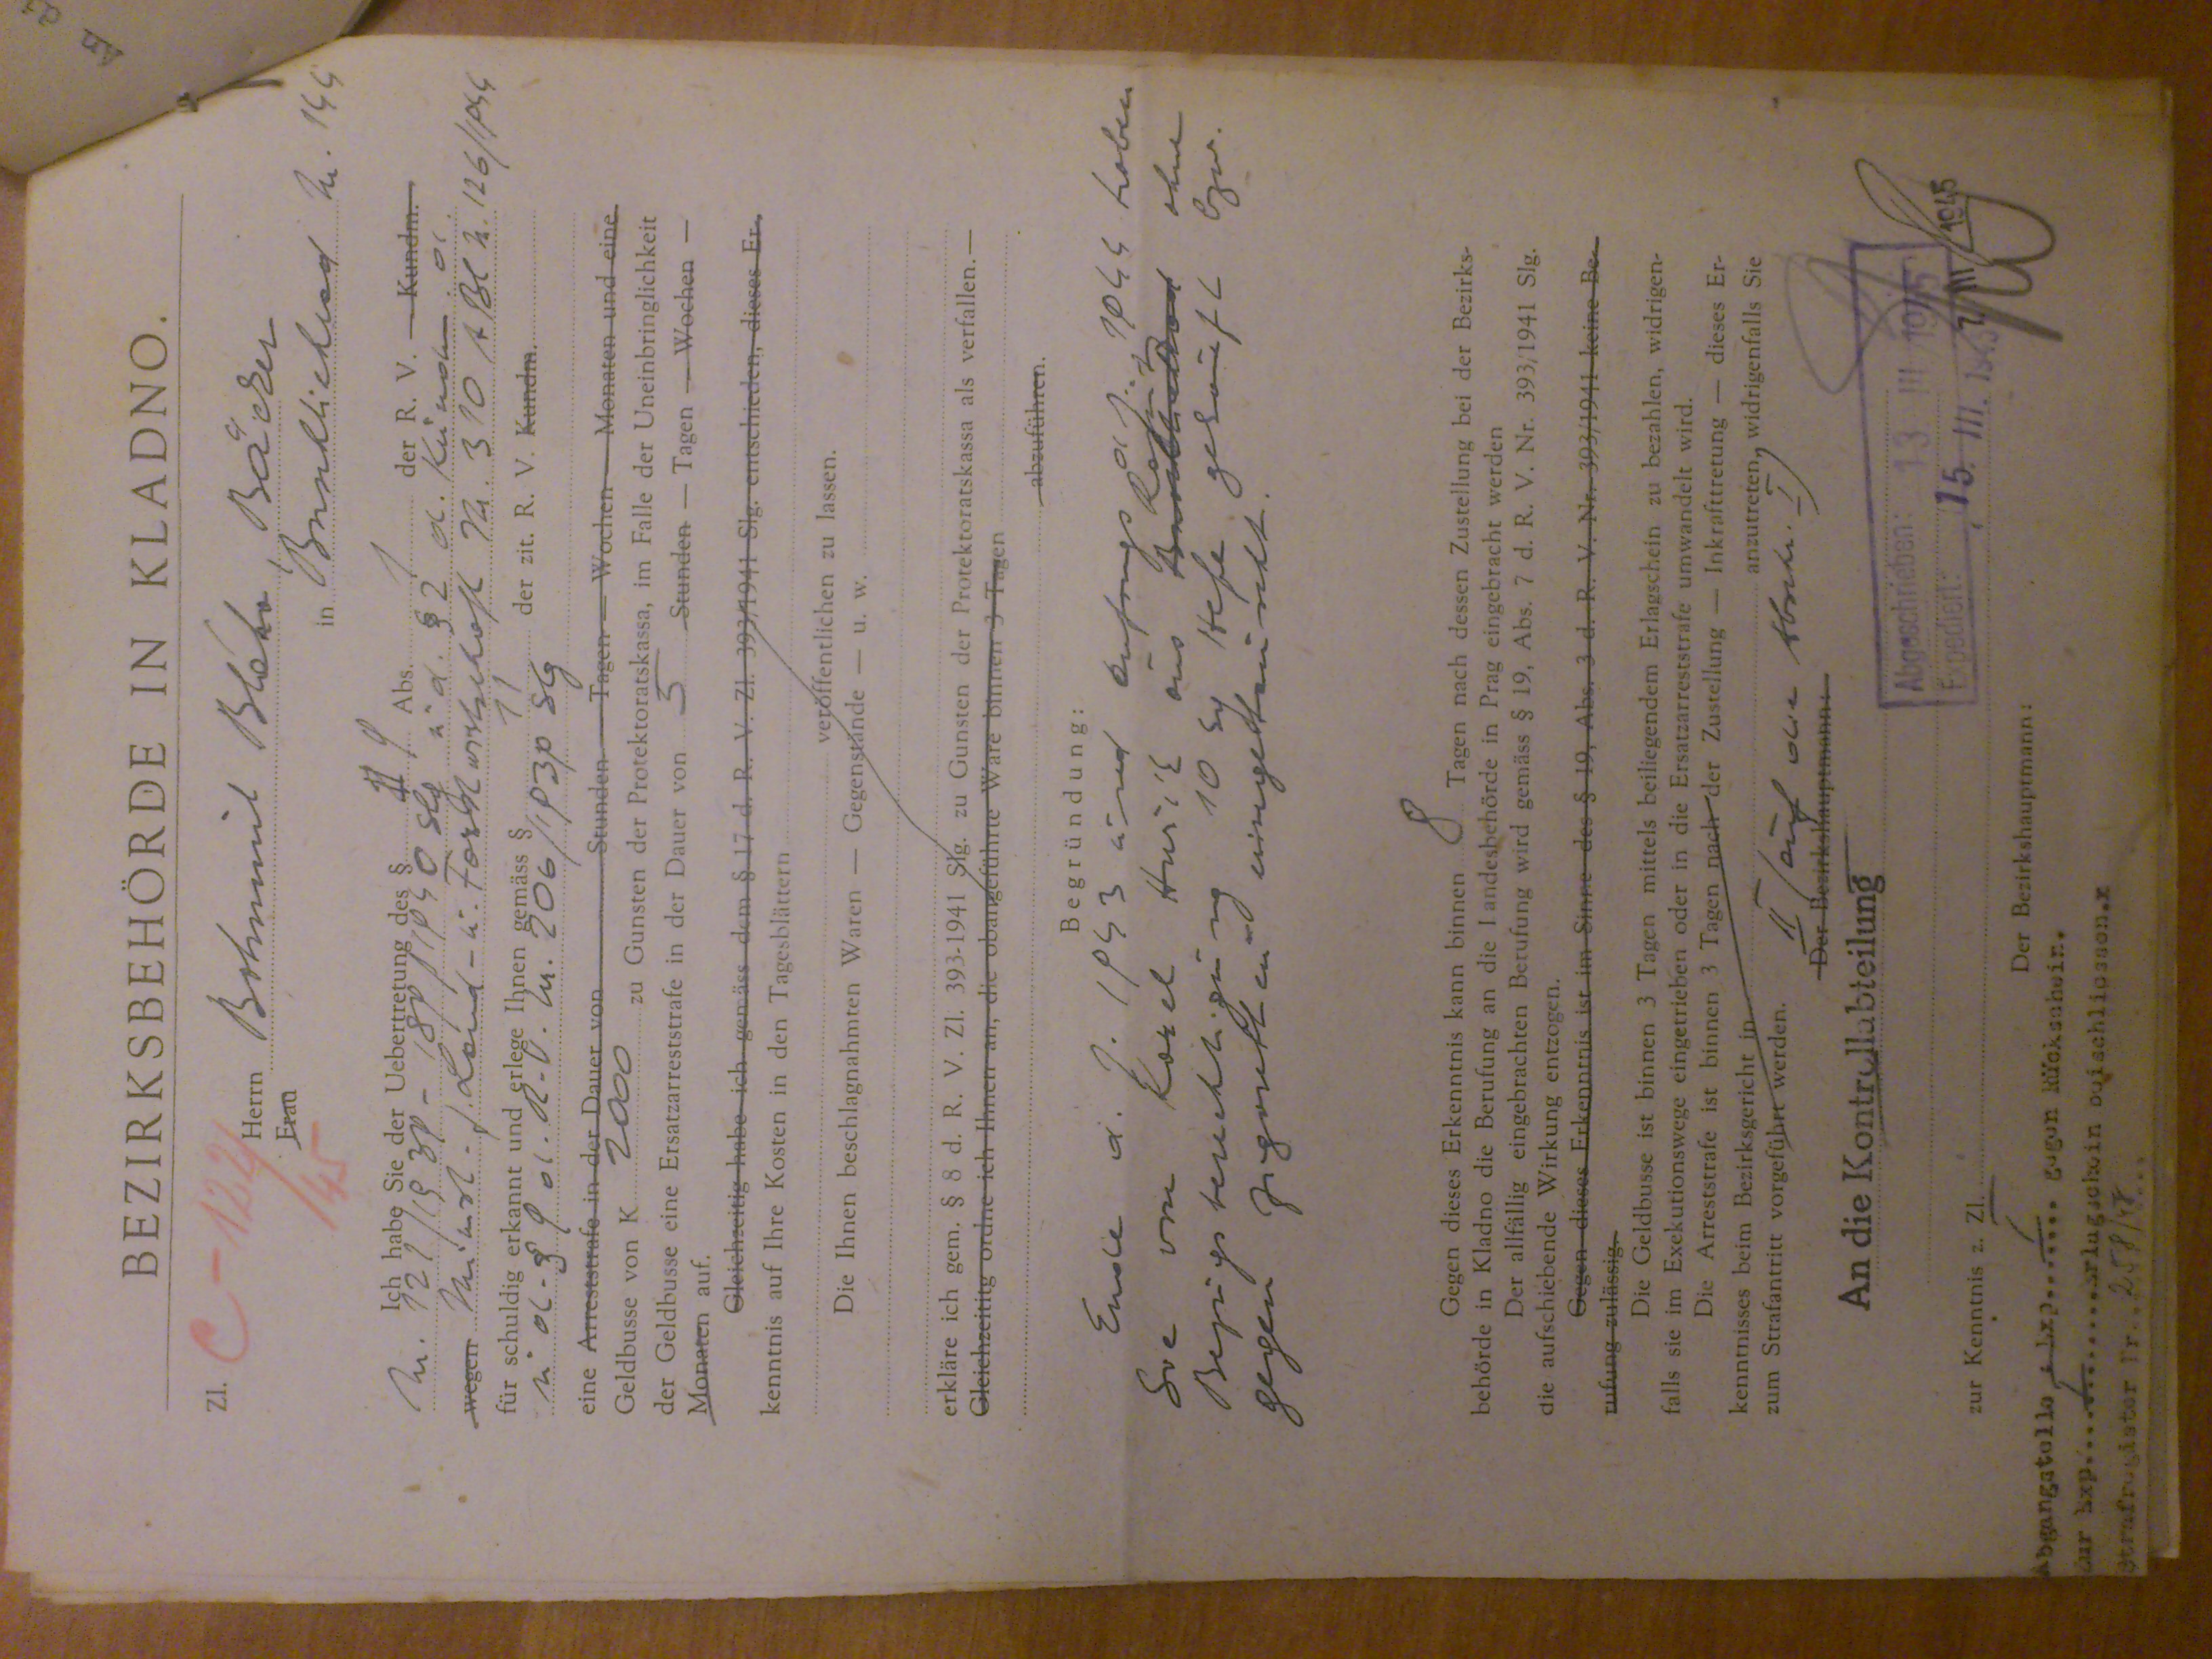 BEZIRKSBEHÖRDE IN KLADNO.
Zl. C-122/45
Herrn Bohumil Bláha, Bäcker
Frau
in Buschtiehrad Nr. 144
Ich habe Sie der Uebertretung des § 9 Abs. 1 der R. V. — Kundm.
Nr. 121/1939 - 189/1940 Slg u. d. § 2 d. Kundm. d.
wegen Minist. f. Land- u. Forstwirtschaft Nr. 310 ABl N. 126/1944
für schuldig erkannt und erlege Ihnen gemäss § 11 der zit. R. V. Kundm.
u d. § 9 d. R. V. Nr. 206/1939 Slg
eine Arreststrafe in der Dauer von Stunden — Tagen — Wochen — Monaten und eine
Geldbusse von K 2000 zu Gunsten der Protektoratskassa, im Falle der Uneinbringlichkeit
der Geldbusse eine Ersatzarreststrafe in der Dauer von 5 Stunden — Tagen — Wochen —
Monaten auf.
Gleichzeitig habe ich gemäss dem § 17 d. R. V. Zl. 393/1941 Slg. entschieden, dieses Er-
kenntnis auf Ihre Kosten in den Tagesblättern
veröffentlichen zu lassen.
Die Ihnen beschlagnahmten Waren — Gegenstände — u. w.
erkläre ich gem. § 8 d. R. V. Zl. 393-1941 Slg. zu Gunsten der Protektoratskassa als verfallen.—
Gleichzeititg ordne ich Ihnen an, die obangeführte Ware binnen 3 Tagen
abzuführen.
Begründung:
Ende d. J. 1943 und anfangs d J. 1944 haben
Sie von Karel Husák aus Buschtiehrad ohne
Bezugsberechtigung 10 kg Hefe gekauft bzw.
gegen Zigaretten eingetauscht.
Gegen dieses Erkenntnis kann binnen 8 Tagen nach dessen Zustellung bei der Bezirks-
behörde in Kladno die Berufung an die Landesbehörde in Prag eingebracht werden
Der allfällig eingebrachten Berufung wird gemäss § 19, Abs. 7 d. R. V. Nr. 393/1941 Slg.
die aufschiebende Wirkung entzogen.
Gegen dieses Erkenntnis ist im Sinne des § 19, Abs. 3 d. R. V. Nr. 393/1941 keine Be-
rufung zulässig.
Die Geldbusse ist binnen 3 Tagen mittels beiliegendem Erlagschein zu bezahlen, widrigen-
falls sie im Exekutionswege eingetrieben oder in die Ersatzarreststrafe umwandelt wird.
Die Arreststrafe ist binnen 3 Tagen nach der Zustellung — Inkrafttretung — dieses Er-
kenntnisses beim Bezirksgericht in anzutreten, widrigenfalls Sie
zum Strafantritt vorgeführt werden.
II (auf die Abschr. I)
Der Bezirkshauptmann:
An die Kontrollabteilung
Abgeschrieben: 13 III 1945
Expediert: 15. III. 1945
zur Kenntnis z. Zl.
Der Bezirkshauptmann:
Abgangstelle : Exp....... gegen Rückschein.
Zur Exp.............Erlagschein beischliessen.
Strafregister Nr.